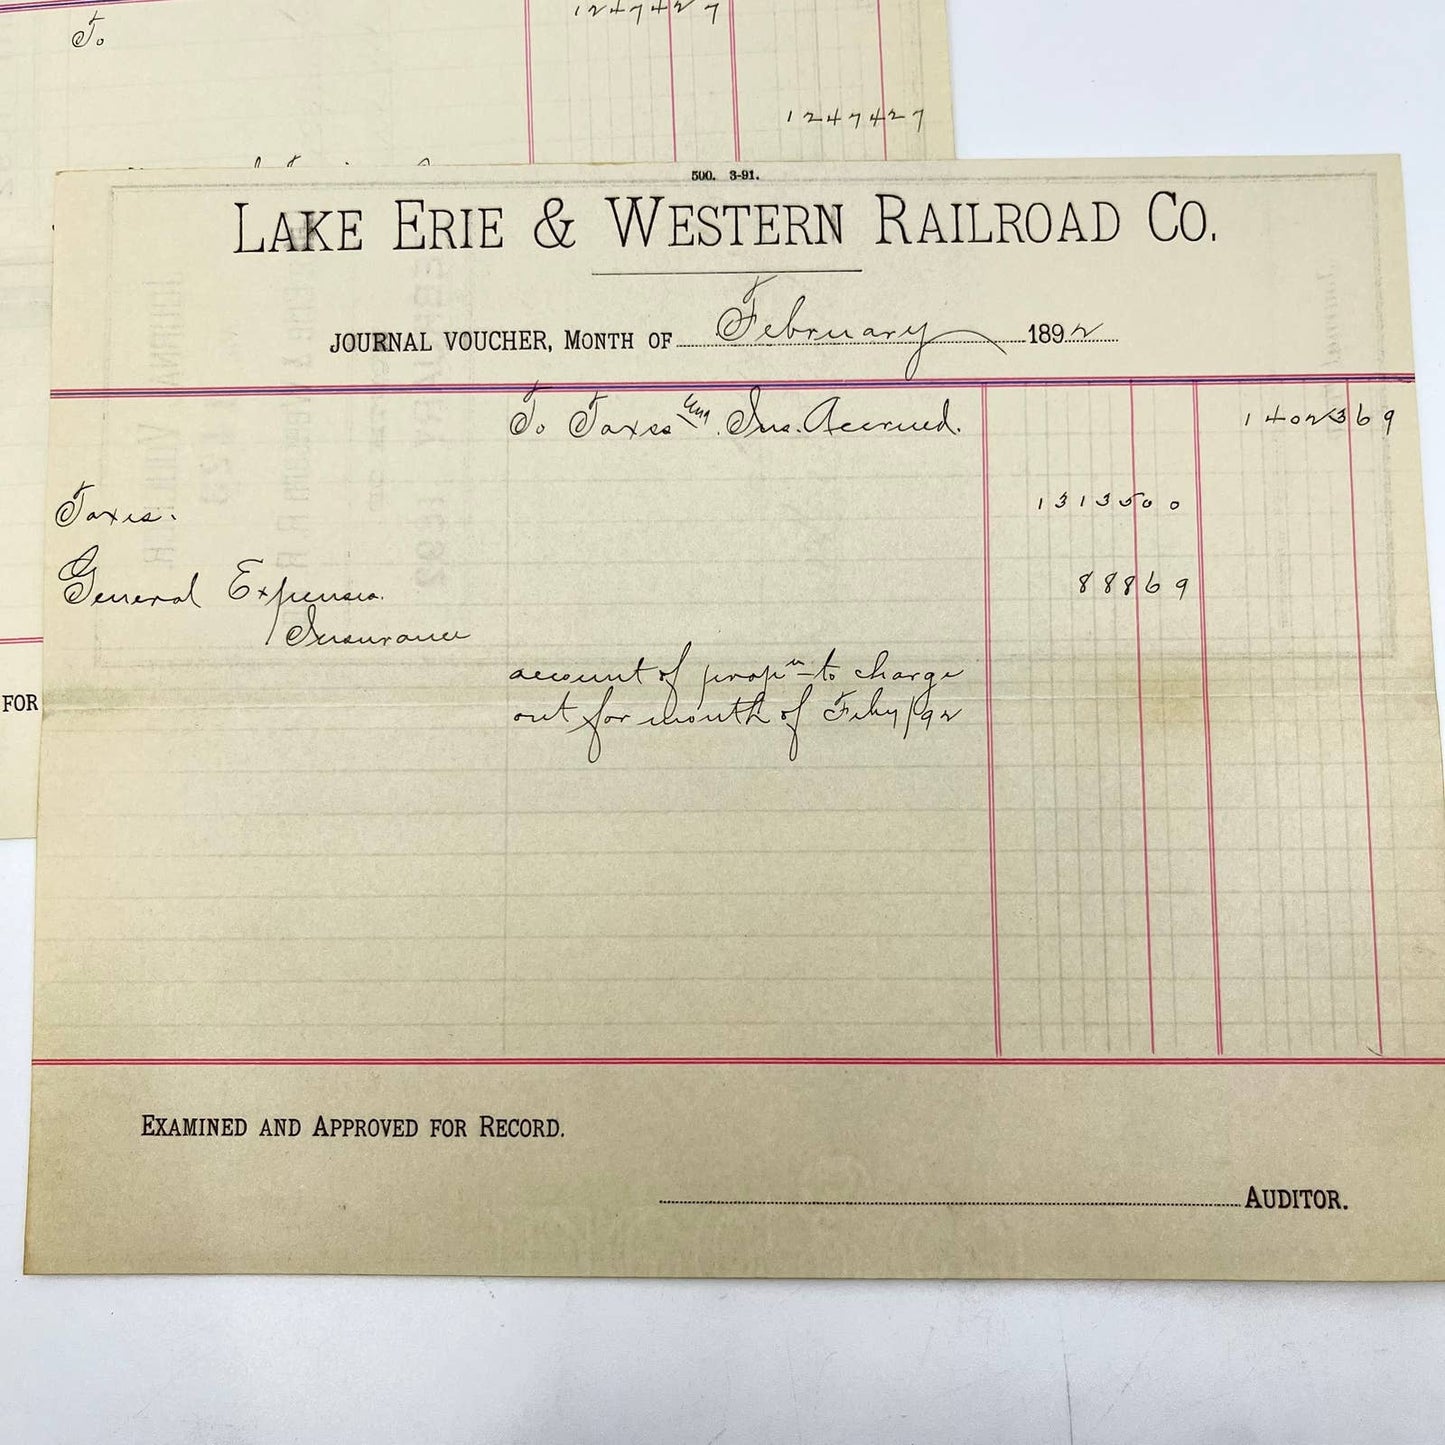 1247427
To
1247427
FOR
500. 3-91.
LAKE ERIE & WESTERN RAILROAD CO.
JOURNAL VOUCHER, MONTH OF February 1892
To Taxes Ins. Accrued. 1402369
Taxes. 1313500
General Expenses. 88869
Insurance
account of propn to charge
out for month of Feby/92
EXAMINED AND APPROVED FOR RECORD.
AUDITOR.